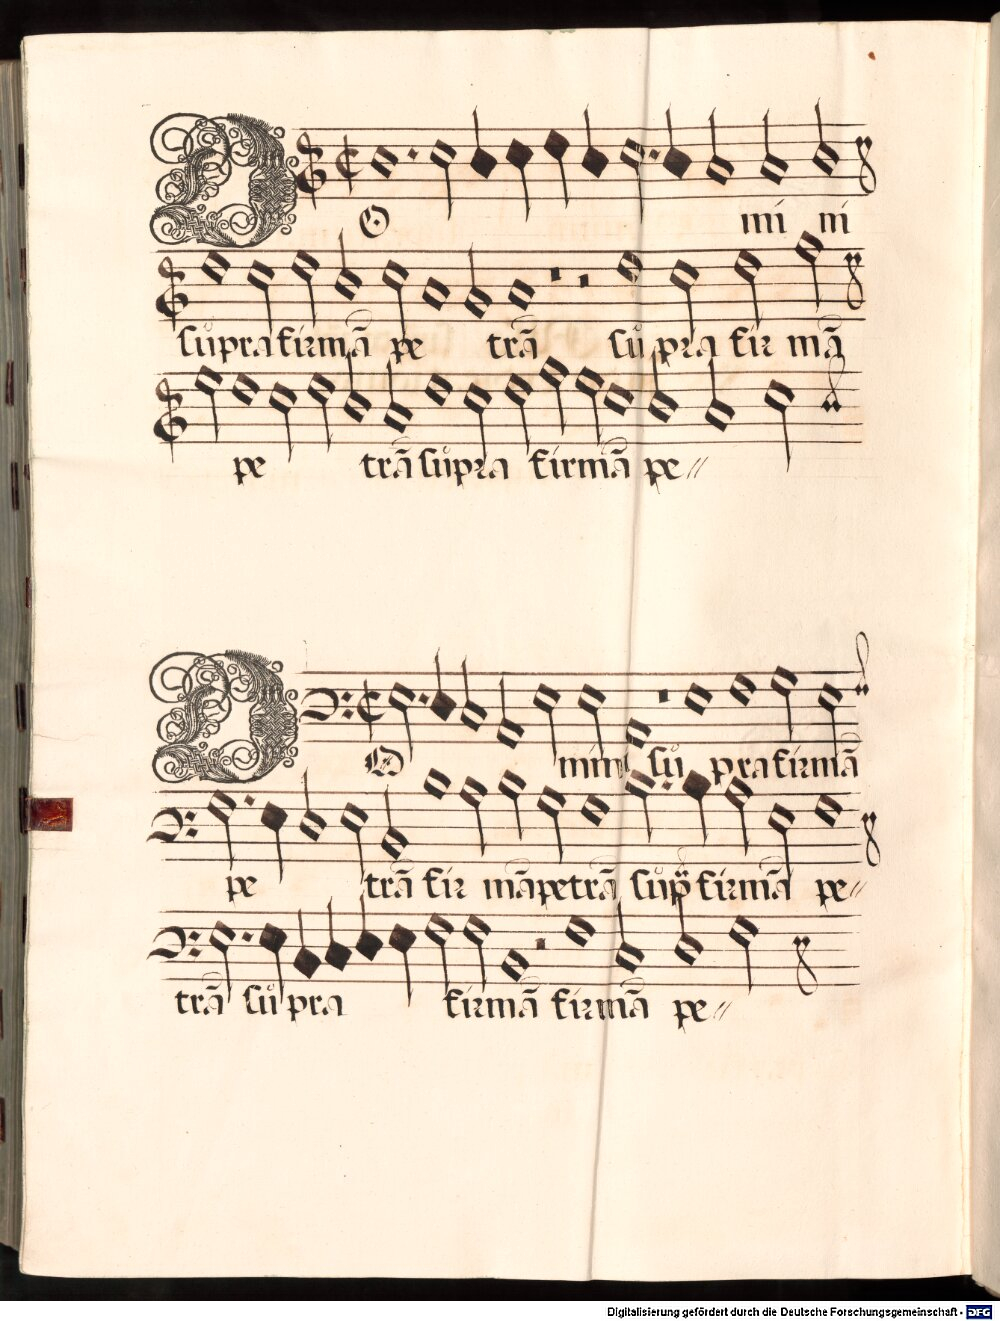 DO mi ni
supra firmã pe trã su pra fir mã
pe trã supra firmã pe//
DO mini su pra firmã
pe trã fir mãpetrã sup̃ firmã pe//
trã su pra firmã firmã pe//
Digitalisierung gefördert durch die Deutsche Forschungsgemeinschaft - DFG